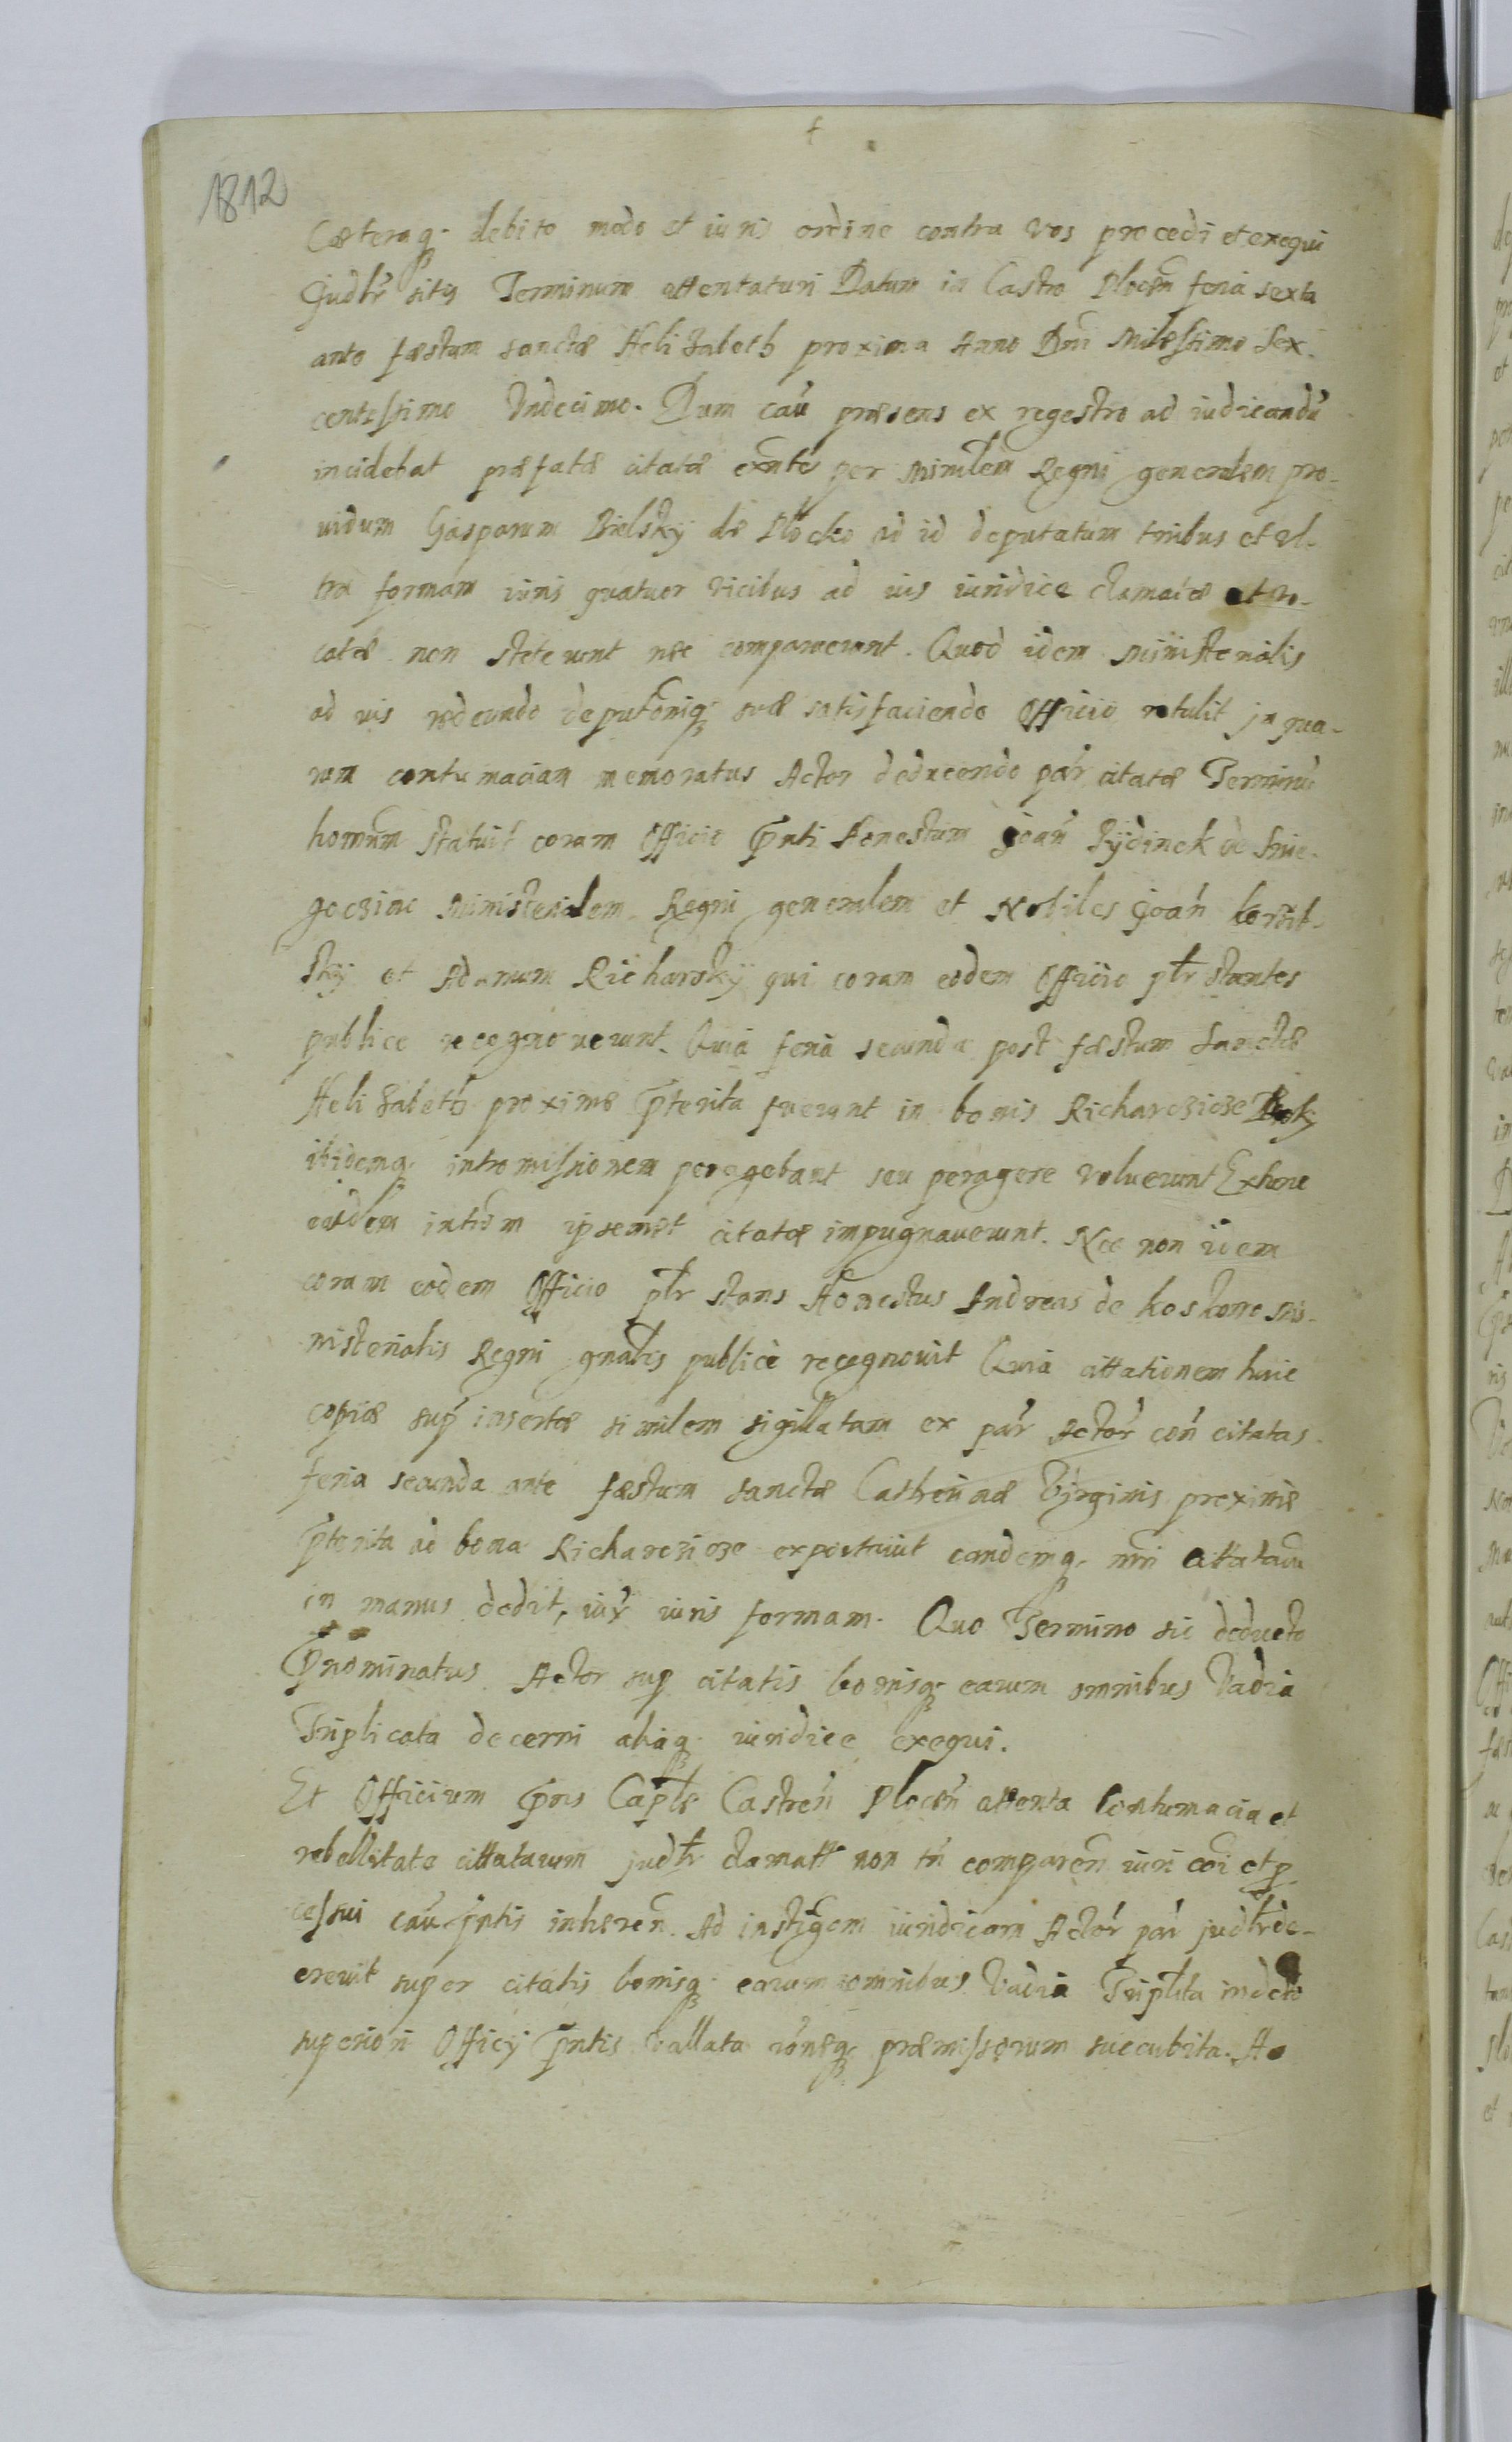 1812
Cæteraq; debito modo et iuris ordine contra vos procedi et exequi
Judlr sitis Terminum attentaturi Datum in Castro Plocen feria sexta
ante fæstum sanctæ Helisabeth proxima Anno Dni Milessimo sex-
centessimo Vndecimo. Dum cau præsens ex regestro ad iudicandu
incidebat præfatæ citatæ exnte per Minrlem Regni generalem pro-
uidum Gasparum Bielsky de Plocko ad id deputatum tribus et vl-
tra formam iuris quatuor vicibus ad ius iuridice clamatæ et vo-
catæ non steterunt nec comparuerunt. Quod idem Ministerialis
ad ius redeundo deputoniq; suæ satisfaciendo Officio retulit in qua-
rum contumaciam memoratus Actor deducendo par citatæ Terminu
hornum statuit coram Officio pnti Honestum Joan Rydinek de
goczino Ministerialem Regni generalem et Nobiles Joan
sky et Adamum Richarsky qui coram eodem Officio plr stantes
publice recognouerunt. Quia feria secunda post fæstum sanctæ
Helisabeth proxime pterita fuerunt in bonis Richarcicze
ibidemq; intromissionem peragebant seu peragere voluerunt Exhone
eadem introm ipsemet citatæ impugnauerunt. Nec non idem
coram eodem Officio plr stans Honestus Andreas de Koskowo Mi-
nisterialis Regni gnalis publicè recognouit Quia cittationem huic
copiæ sup insertæ similem sigillatam ex par Actor con citatas
feria secunda ante fæstum sanctæ Catherinæ Virginis proxime
pterita ad bona Richarcicze exportauit eandemq; citatam
in manus dedit, iux iuris formam. Quo Termino sic deducto
Pnominatus Actor sup citatis bonisq; earum omnibus Vadia
Triplicata decerni aliaq; iuridice exequi.
Et Officium pns Caplle Castren Plocen attenta Contumacia et
rebellitate cittatarum judlr clamatt non tn comparen iuri coi et p-
cessui cau pntis inheren. Ad instigem iuridicam Actor par judlr de-
creuit super citatis bonisq; earum omnibus Vadia Triplta in dcto
superiori Officy pntis vallata roneq; præmissorum succubita. Ac